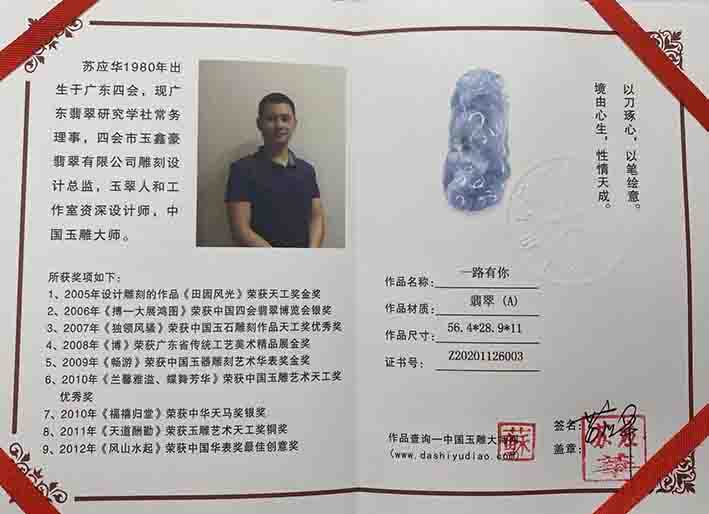 苏应华1980年出
生于广东四会，现广
东翡翠研究学社常务
理事，四会市玉鑫豪
翡翠有限公司雕刻设
计总监，玉翠人和工
作室资深设计师，中
国玉雕大师。
所获奖项如下：
1、2005年设计雕刻的作品《田园风光》荣获天工奖金奖
2、2006年《搏一大展鸿图》荣获中国四会翡翠博览会银奖
3、2007年《独领风骚》荣获中国玉石雕刻作品天工奖优秀奖
4、2008年《博》荣获广东省传统工艺美术精品展金奖
5、2009年《畅游》荣获中国玉器雕刻艺术华表奖金奖
6、2010年《兰馨雅溢、蝶舞芳华》荣获中国玉雕艺术天工奖
优秀奖
7、2010年《福禧归堂》荣获中华天马奖银奖
8、2011年《天道酬勤》荣获玉雕艺术天工奖铜奖
9、2012年《风山水起》荣获中国华表奖最佳创意奖
以刀琢心，以笔绘意。
境由心生，性情天成。
作品名称：一路有你
作品材质：翡翠（A）
作品尺寸：56.4*28.9*11
证书号：Z20201126003
签名：
盖章：
作品查询—中国玉雕大
(www.dashiyudiao.com)
蘇
苏应
华